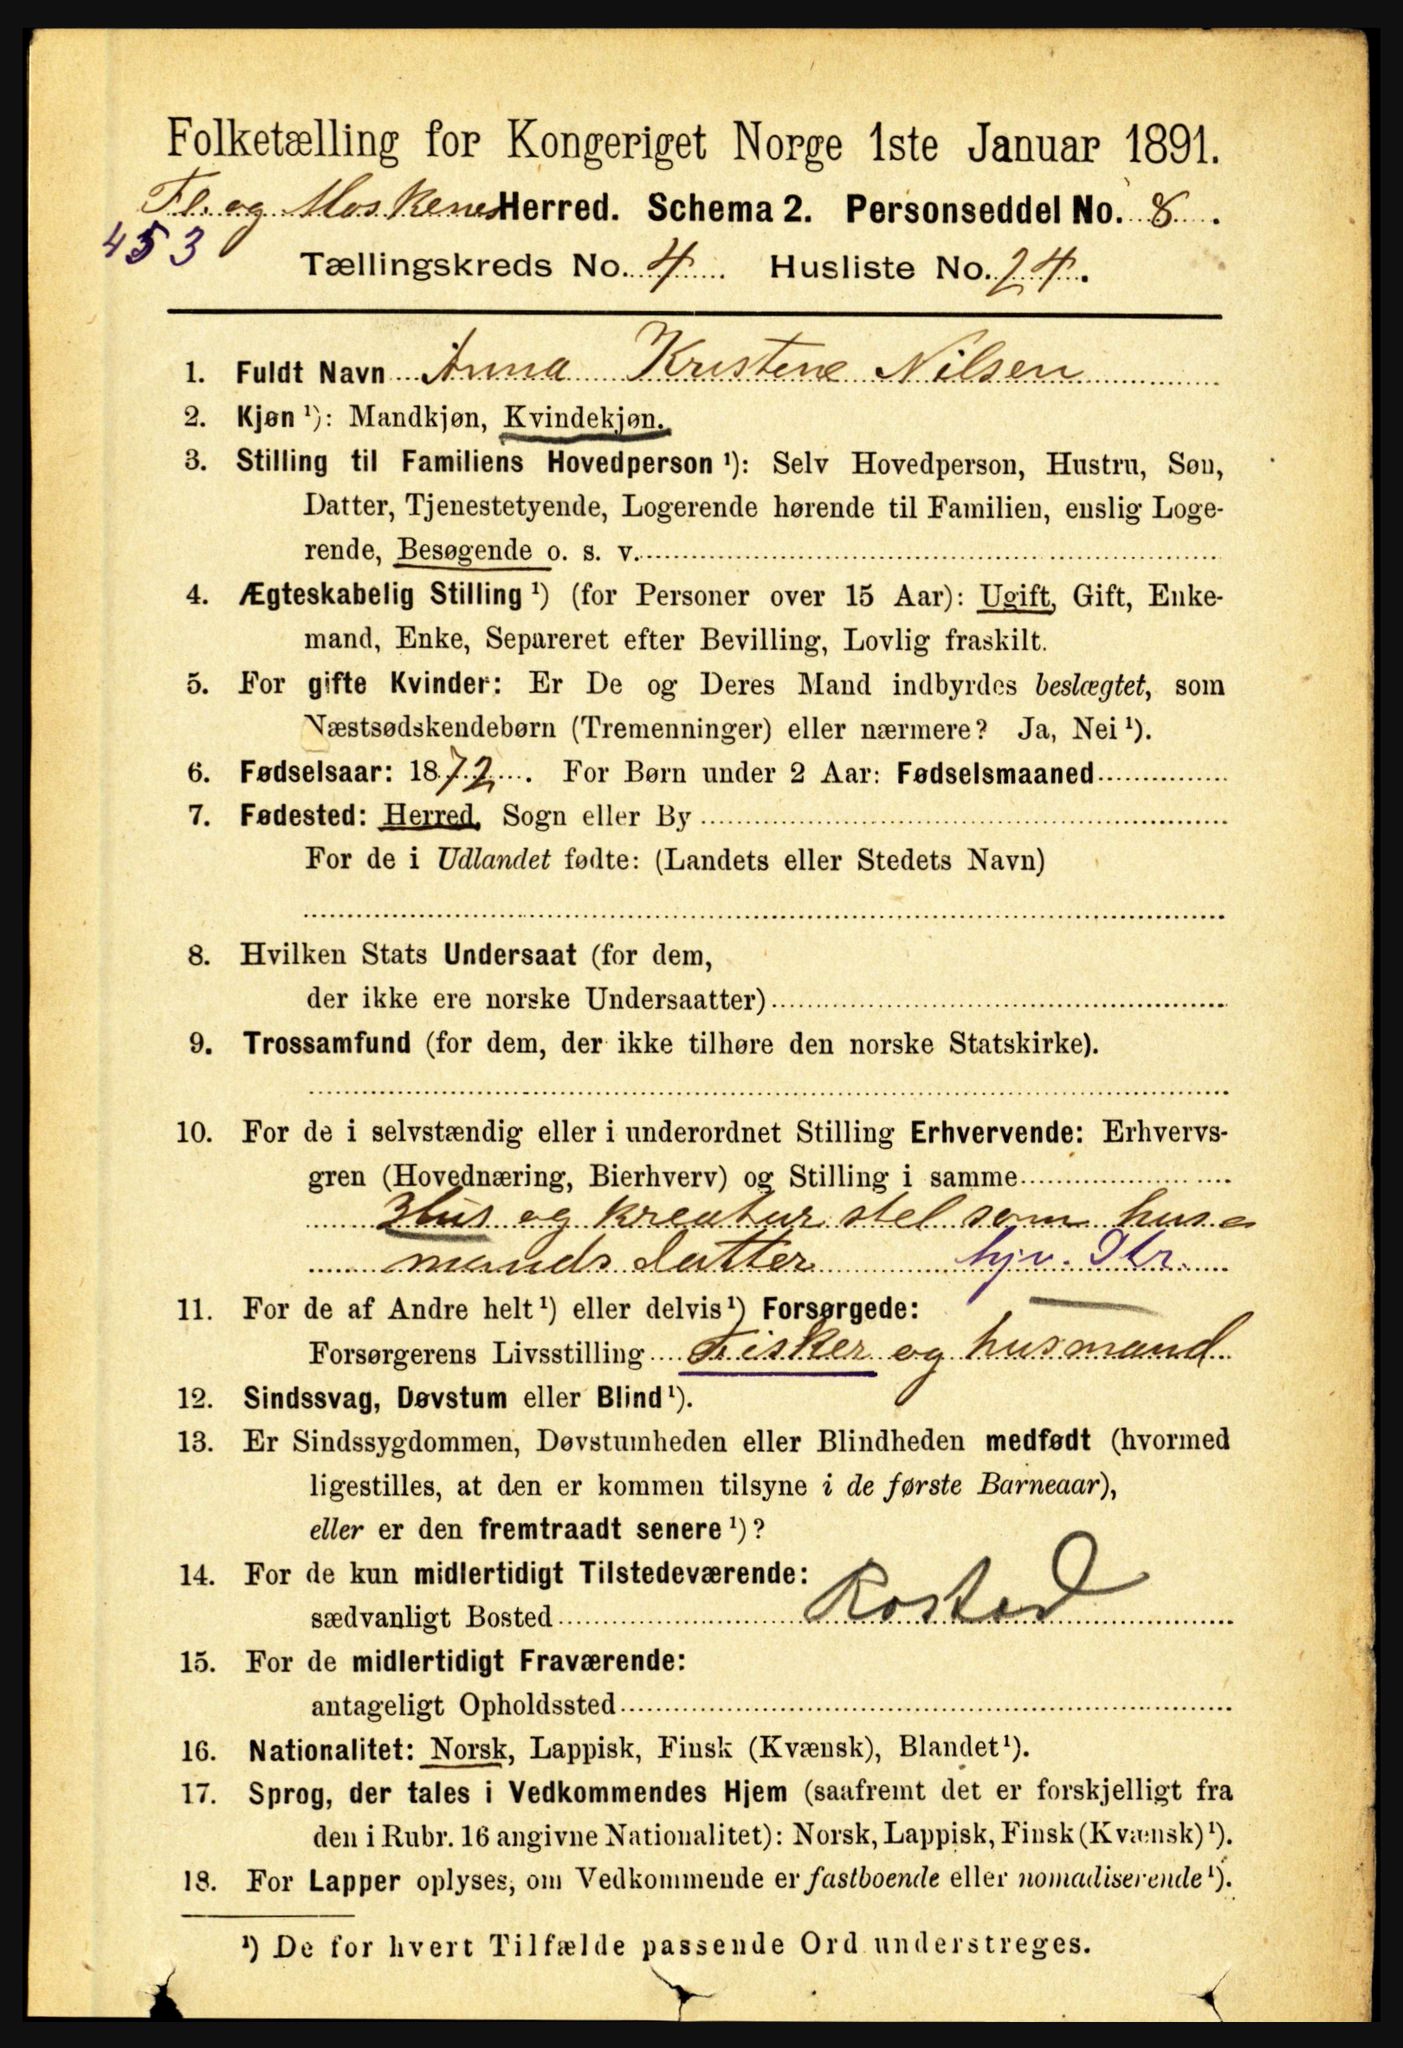 Folketælling for Kongeriget Norge 1ste Januar 1891.
Fl. og Moskenes Herred. Schema 2. Personseddel No. 8.
453
Tællingskreds No. 4 Husliste No. 24.
1. Fuldt Navn Anna Kristine Nilsen
2. Kjøn ¹): Mandkjøn, Kvindekjøn.
3. Stilling til Familiens Hovedperson ¹): Selv Hovedperson, Hustru, Søn,
Datter, Tjenestetyende, Logerende hørende til Familien, enslig Loge-
rende, Besøgende o. s. v.
4. Ægteskabelig Stilling ¹) (for Personer over 15 Aar): Ugift, Gift, Enke-
mand, Enke, Separeret efter Bevilling, Lovlig fraskilt.
5. For gifte Kvinder: Er De og Deres Mand indbyrdes beslægtet, som
Næstsødskendebørn (Tremenninger) eller nærmere? Ja, Nei ¹).
6. Fødselsaar: 1872. For Børn under 2 Aar: Fødselsmaaned
7. Fødested: Herred, Sogn eller By
For de i Udlandet fødte: (Landets eller Stedets Navn)
8. Hvilken Stats Undersaat (for dem,
der ikke ere norske Undersaatter)
9. Trossamfund (for dem, der ikke tilhøre den norske Statskirke).
10. For de i selvstændig eller i underordnet Stilling Erhvervende: Erhvervs-
gren (Hovednæring, Bierhverv) og Stilling i samme
Hus og kreatur stel som hus-
mands datter hjv. Str.
11. For de af Andre helt ¹) eller delvis ¹) Forsørgede:
Forsørgerens Livsstilling Fisker og husmand
12. Sindssvag, Døvstum eller Blind ¹).
13. Er Sindssygdommen, Døvstumheden eller Blindheden medfødt (hvormed
ligestilles, at den er kommen tilsyne i de første Barneaar),
eller er den fremtraadt senere ¹)?
14. For de kun midlertidigt Tilstedeværende:
sædvanligt Bosted Rostad
15. For de midlertidigt Fraværende:
antageligt Opholdssted
16. Nationalitet: Norsk, Lappisk, Finsk (Kvænsk), Blandet ¹).
17. Sprog, der tales i Vedkommendes Hjem (saafremt det er forskjelligt fra
den i Rubr. 16 angivne Nationalitet): Norsk, Lappisk, Finsk (Kvænsk) ¹).
18. For Lapper oplyses, om Vedkommende er fastboende eller nomadiserende ¹).
¹) De for hvert Tilfælde passende Ord understreges.